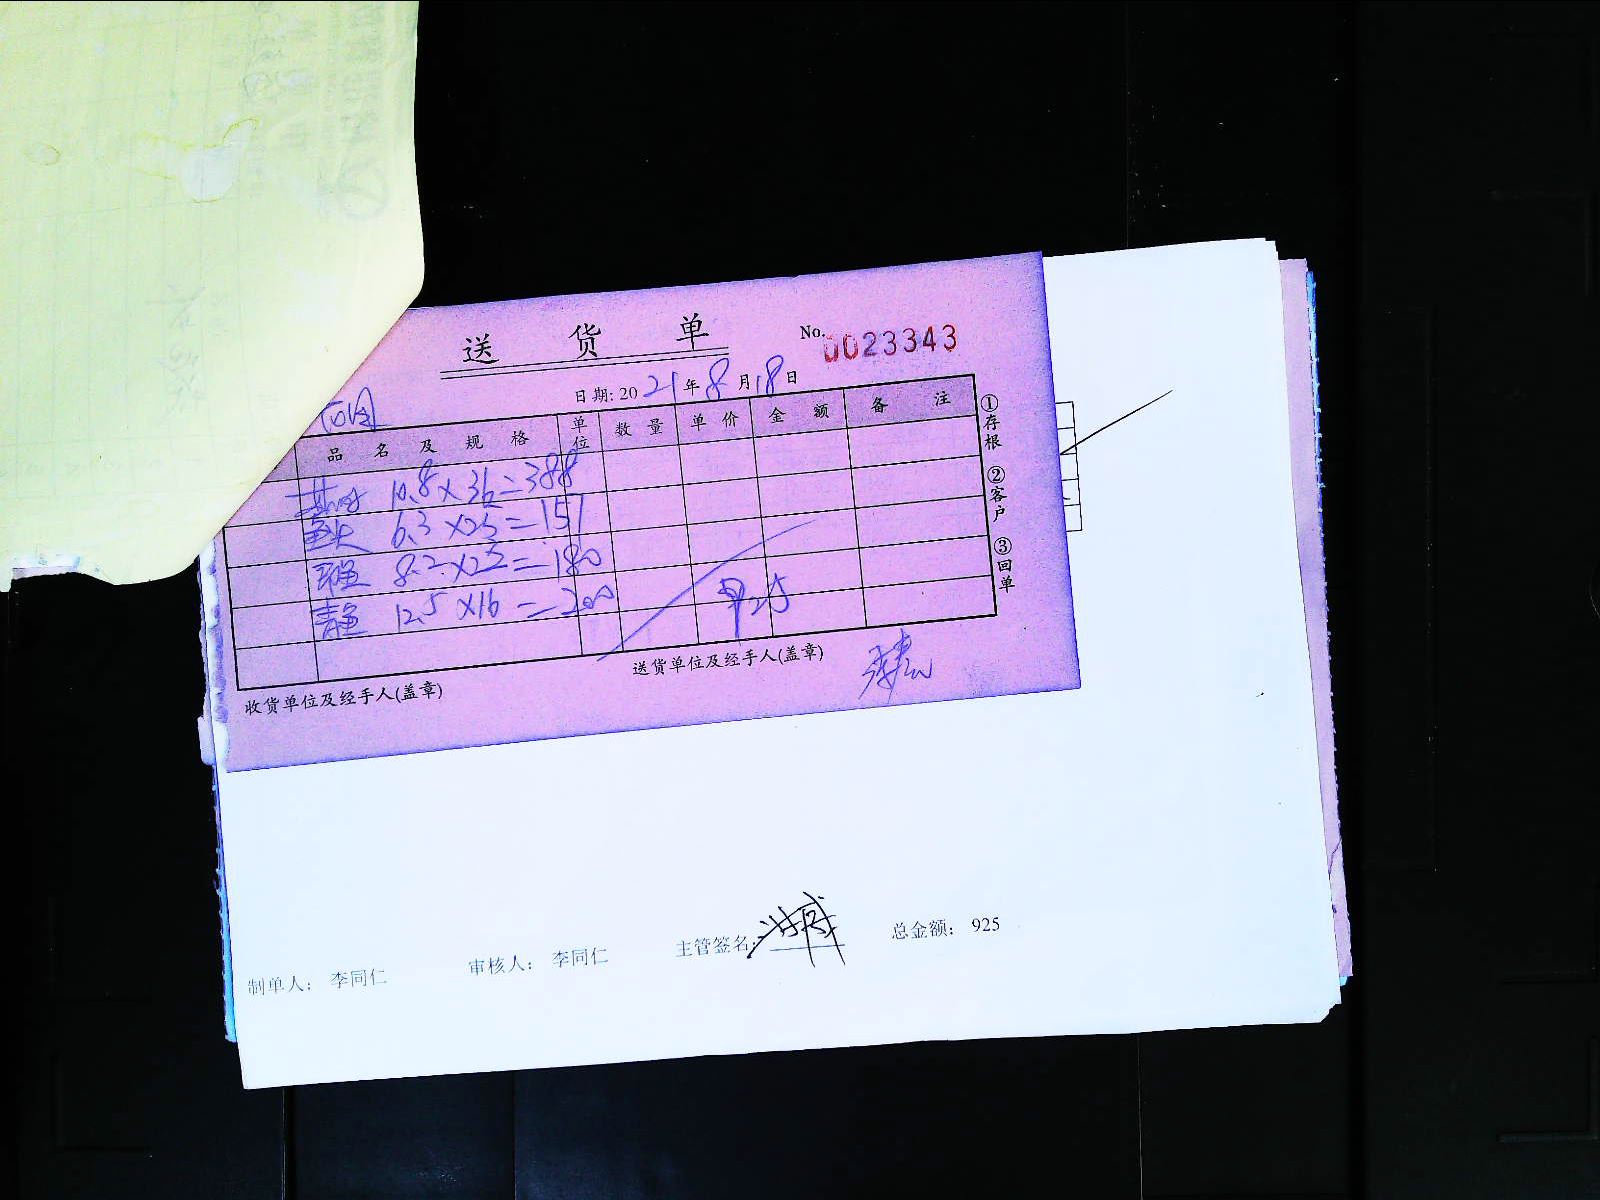 送货单
No. 0023343
日期: 2021年8月18日
品名及规格 单位 数量 单价 金额 备注
10.8×36=388
鱼头 6.3×25=157
8.2×22=180
青鱼 12.5×16=200
925
①存根 ②客户 ③回单
收货单位及经手人(盖章) 送货单位及经手人(盖章)
制单人: 李同仁 审核人: 李同仁 主管签名: 总金额: 925